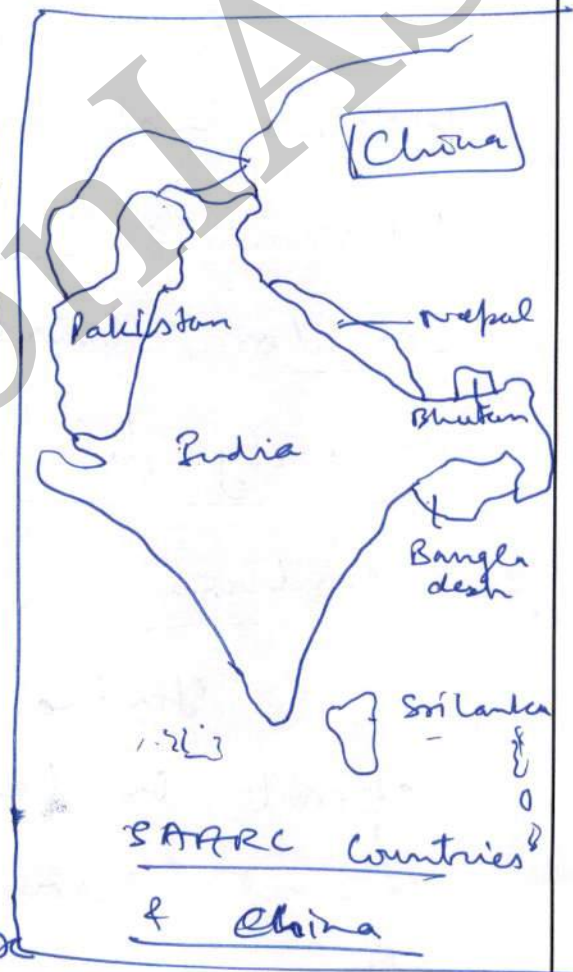 China
Pakistan
Nepal
Bhutan
India
Bangla
desh
Sri Lanka
SAARC Countries
& China